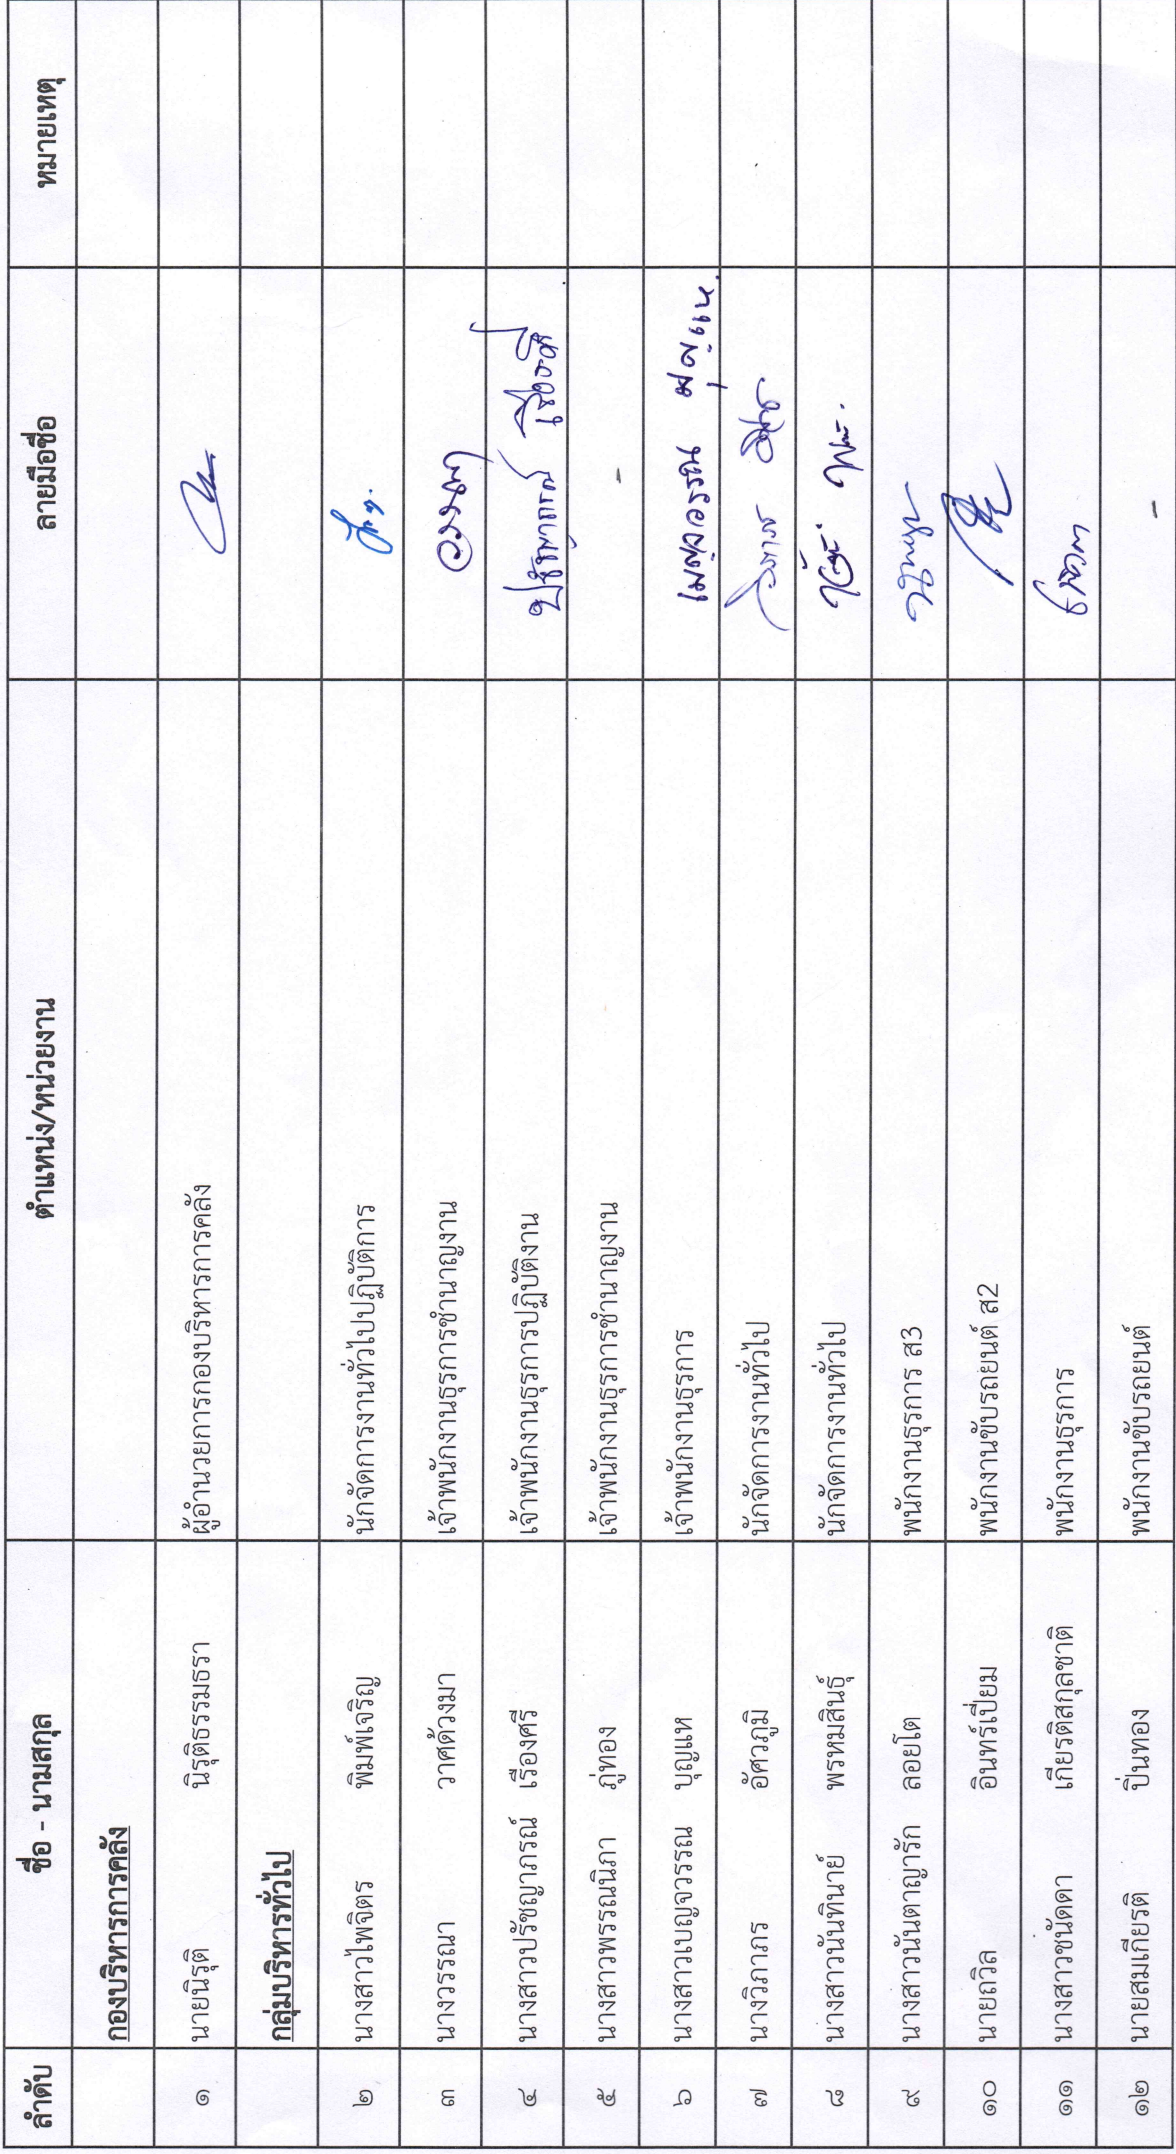 ลำดับ ชื่อ - นามสกุล ตำแหน่ง/หน่วยงาน ลายมือชื่อ หมายเหตุ
กองบริหารการคลัง
๑ นายนิรุติ นิรุติธรรมธรา ผู้อำนวยการกองบริหารการคลัง
กลุ่มบริหารทั่วไป
๒ นางสาวไพจิตร พิมพ์เจริญ นักจัดการงานทั่วไปปฏิบัติการ
๓ นางวรรณา วาศด้วงมา เจ้าพนักงานธุรการชำนาญงาน
๔ นางสาวปรัชญาภรณ์ เรืองศรี เจ้าพนักงานธุรการปฏิบัติงาน ปรัชญาภรณ์ เรืองศรี
๕ นางสาวพรรณนิภา ภู่ทอง เจ้าพนักงานธุรการชำนาญงาน -
๖ นางสาวเบญจวรรณ บุญแห เจ้าพนักงานธุรการ เบญจวรรณ บุญแห
๗ นางวิภาภร อัศวภูมิ นักจัดการงานทั่วไป
๘ นางสาวนันทินาย์ พรหมสินธุ์ นักจัดการงานทั่วไป
๙ นางสาวนันตาญารัก ลอยโต พนักงานธุรการ ส3
๑๐ นายถวิล อินทร์เปี่ยม พนักงานขับรถยนต์ ส2
๑๑ นางสาวชนัดดา เกียรติสกุลชาติ พนักงานธุรการ
๑๒ นายสมเกียรติ ปิ่นทอง พนักงานขับรถยนต์ -